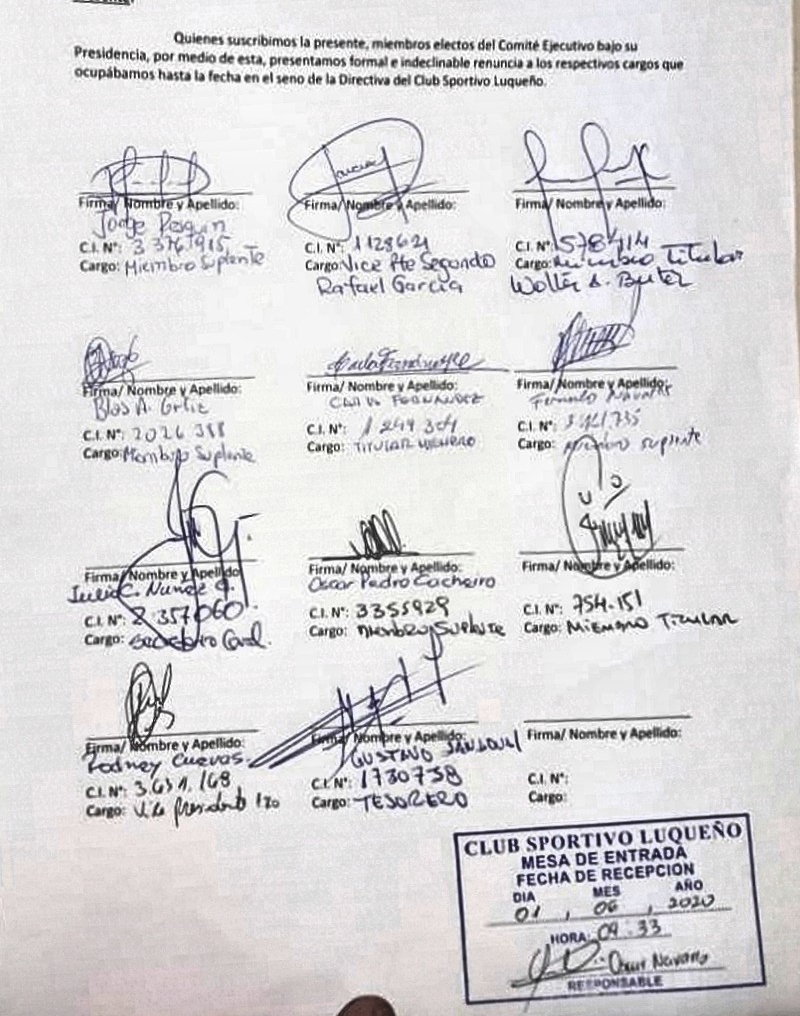 Quienes suscribimos la presente, miembros electos del Comité Ejecutivo bajo su
Presidencia, por medio de esta, presentamos formal e indeclinable renuncia a los respectivos cargos que
ocupábamos hasta la fecha en el seno de la Directiva del Club Sportivo Luqueño.
Firma/ Nombre y Apellido:
Jorge
C.I. N°:
Cargo: Miembro Suplente
Firma/ Nombre y Apellido:
C.I. N°: 1128621
Cargo: Vice Pte Segundo
Rafael Garcia
Firma/ Nombre y Apellido:
C.I. N°:
Cargo: Miembro Titular
Firma/ Nombre y Apellido:
Blas A. Ortiz
C.I. N°: 2026388
Cargo: Miembro Suplente
Firma/ Nombre y Apellido:
C.I. N°:
Cargo: TITULAR
Firma/ Nombre y Apellido:
C.I. N°:
Cargo: suplente
Firma/ Nombre y Apellido:
Julio C. Nuñez
C.I. N°: 2.357060
Cargo:
Firma/ Nombre y Apellido:
Oscar Pedro Cacheiro
C.I. N°: 3355929
Cargo: Miembro Suplente
Firma/ Nombre y Apellido:
C.I. N°: 754.151
Cargo: MIEMBRO TITULAR
Firma/ Nombre y Apellido:
Rodney Cuevas
C.I. N°:
Cargo: Vice presidente 1ro
Firma/ Nombre y Apellido:
GUSTAVO SANDOVAL
C.I. N°: 1730738
Cargo: TESORERO
Firma/ Nombre y Apellido:
C.I. N°:
Cargo:
CLUB SPORTIVO LUQUEÑO
MESA DE ENTRADA
FECHA DE RECEPCION
DIA MES AÑO
01, 06, 2020
HORA: 09:33
Omar Navarro
RESPONSABLE